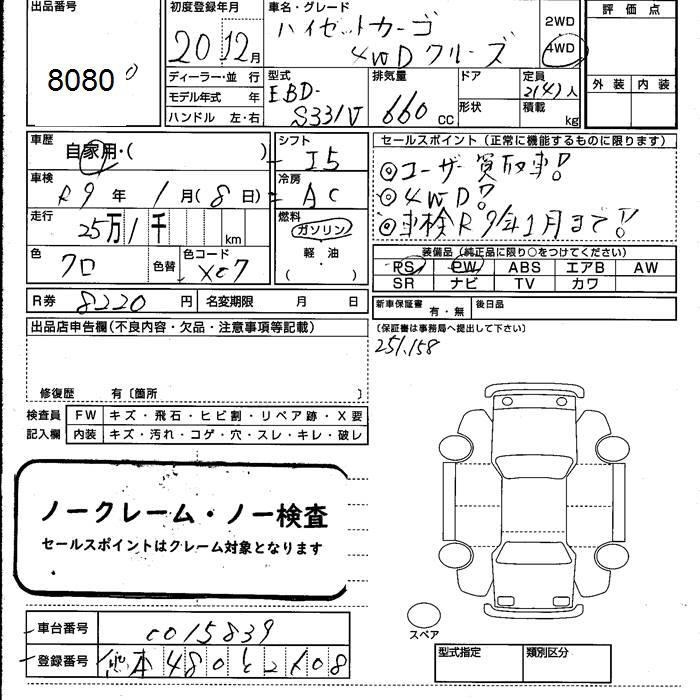 出品番号
8080
初度登録年月
20 12月
車名・グレード
ハイゼットカーゴ
4WDクルーズ
2WD
4WD
評価点
外装 内装
ディーラー・並 行
モデル年式 年
ハンドル 左・右
型式
EBD-
S331V
排気量
660 cc
ドア
形状
定員
2(4)人
積載
kg
車歴
自家用・( )
シフト
I5
車検
R9年 1月(8日)
冷房
AC
走行
25万1千 km
燃料
ガソリン
軽・油
( )
色
クロ
色替
色コード
X07
セールスポイント (正常に機能するものに限ります)
◎ユーザー買取車!
◎4WD!
◎車検R9年1月まで!!
装備品 (純正品に限り○をつけてください)
PS PW ABS エアB AW
SR ナビ TV カワ
R券 8220 円 名変期限 月 日
新車保証書
有・無
後日品
〔保証書は事務局へ提出して下さい〕
251,158
出品店申告欄(不良内容・欠品・注意事項等記載)
修復歴 有〔箇所 〕
検査員
記入欄
FW キズ・飛石・ヒビ割・リペア跡・X要
内装 キズ・汚れ・コゲ・穴・スレ・キレ・破レ
ノークレーム・ノー検査
セールスポイントはクレーム対象となります
スペア
車台番号 0015839
登録番号 熊本480
型式指定 類別区分